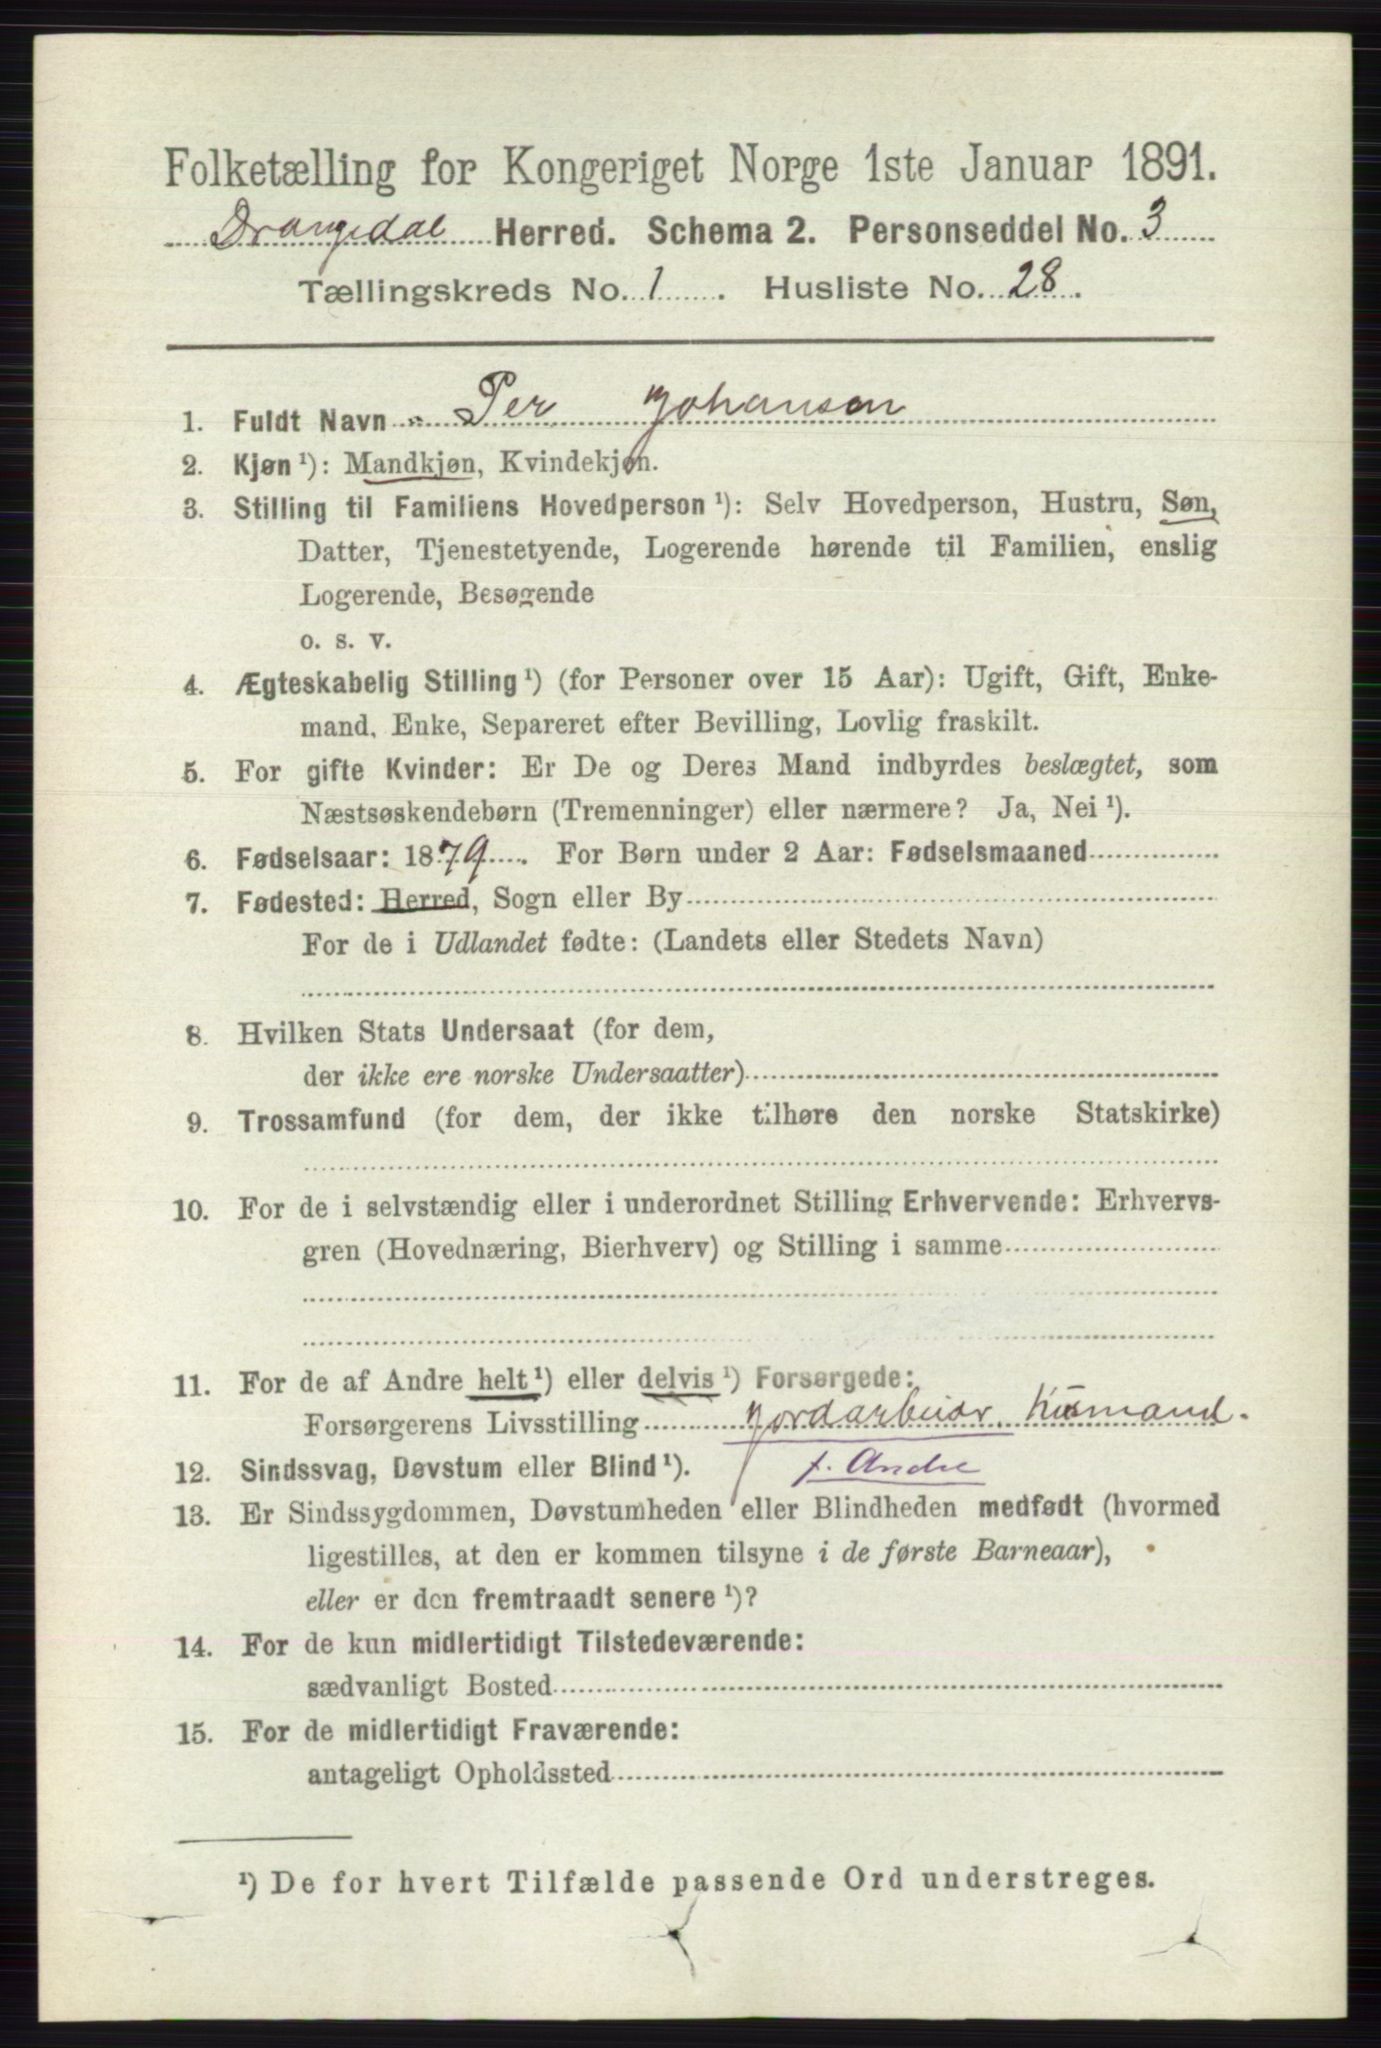 Folketælling for Kongeriget Norge 1ste Januar 1891.
Drangedal Herred. Schema 2. Personseddel No. 3
Tællingskreds No. 1. Husliste No. 28.
1. Fuldt Navn Per Johansen
2. Kjøn ¹): Mandkjøn, Kvindekjøn.
3. Stilling til Familiens Hovedperson ¹): Selv Hovedperson, Hustru, Søn,
Datter, Tjenestetyende, Logerende hørende til Familien, enslig
Logerende, Besøgende
o. s. v.
4. Ægteskabelig Stilling ¹) (for Personer over 15 Aar): Ugift, Gift, Enke-
mand, Enke, Separeret efter Bevilling, Lovlig fraskilt.
5. For gifte Kvinder: Er De og Deres Mand indbyrdes beslægtet, som
Næstsøskendebørn (Tremenninger) eller nærmere? Ja, Nei ¹).
6. Fødselsaar: 1879. For Børn under 2 Aar: Fødselsmaaned
7. Fødested: Herred, Sogn eller By
For de i Udlandet fødte: (Landets eller Stedets Navn)
8. Hvilken Stats Undersaat (for dem,
der ikke ere norske Undersaatter)
9. Trossamfund (for dem, der ikke tilhøre den norske Statskirke)
10. For de i selvstændig eller i underordnet Stilling Erhvervende: Erhvervs-
gren (Hovednæring, Bierhverv) og Stilling i samme
11. For de af Andre helt ¹) eller delvis ¹) Forsørgede:
Forsørgerens Livsstilling Jordarbeidr. Husmand.
12. Sindssvag, Døvstum eller Blind ¹). f. Andre
13. Er Sindssygdommen, Døvstumheden eller Blindheden medfødt (hvormed
ligestilles, at den er kommen tilsyne i de første Barneaar),
eller er den fremtraadt senere ¹)?
14. For de kun midlertidigt Tilstedeværende:
sædvanligt Bosted
15. For de midlertidigt Fraværende:
antageligt Opholdssted
¹) De for hvert Tilfælde passende Ord understreges.